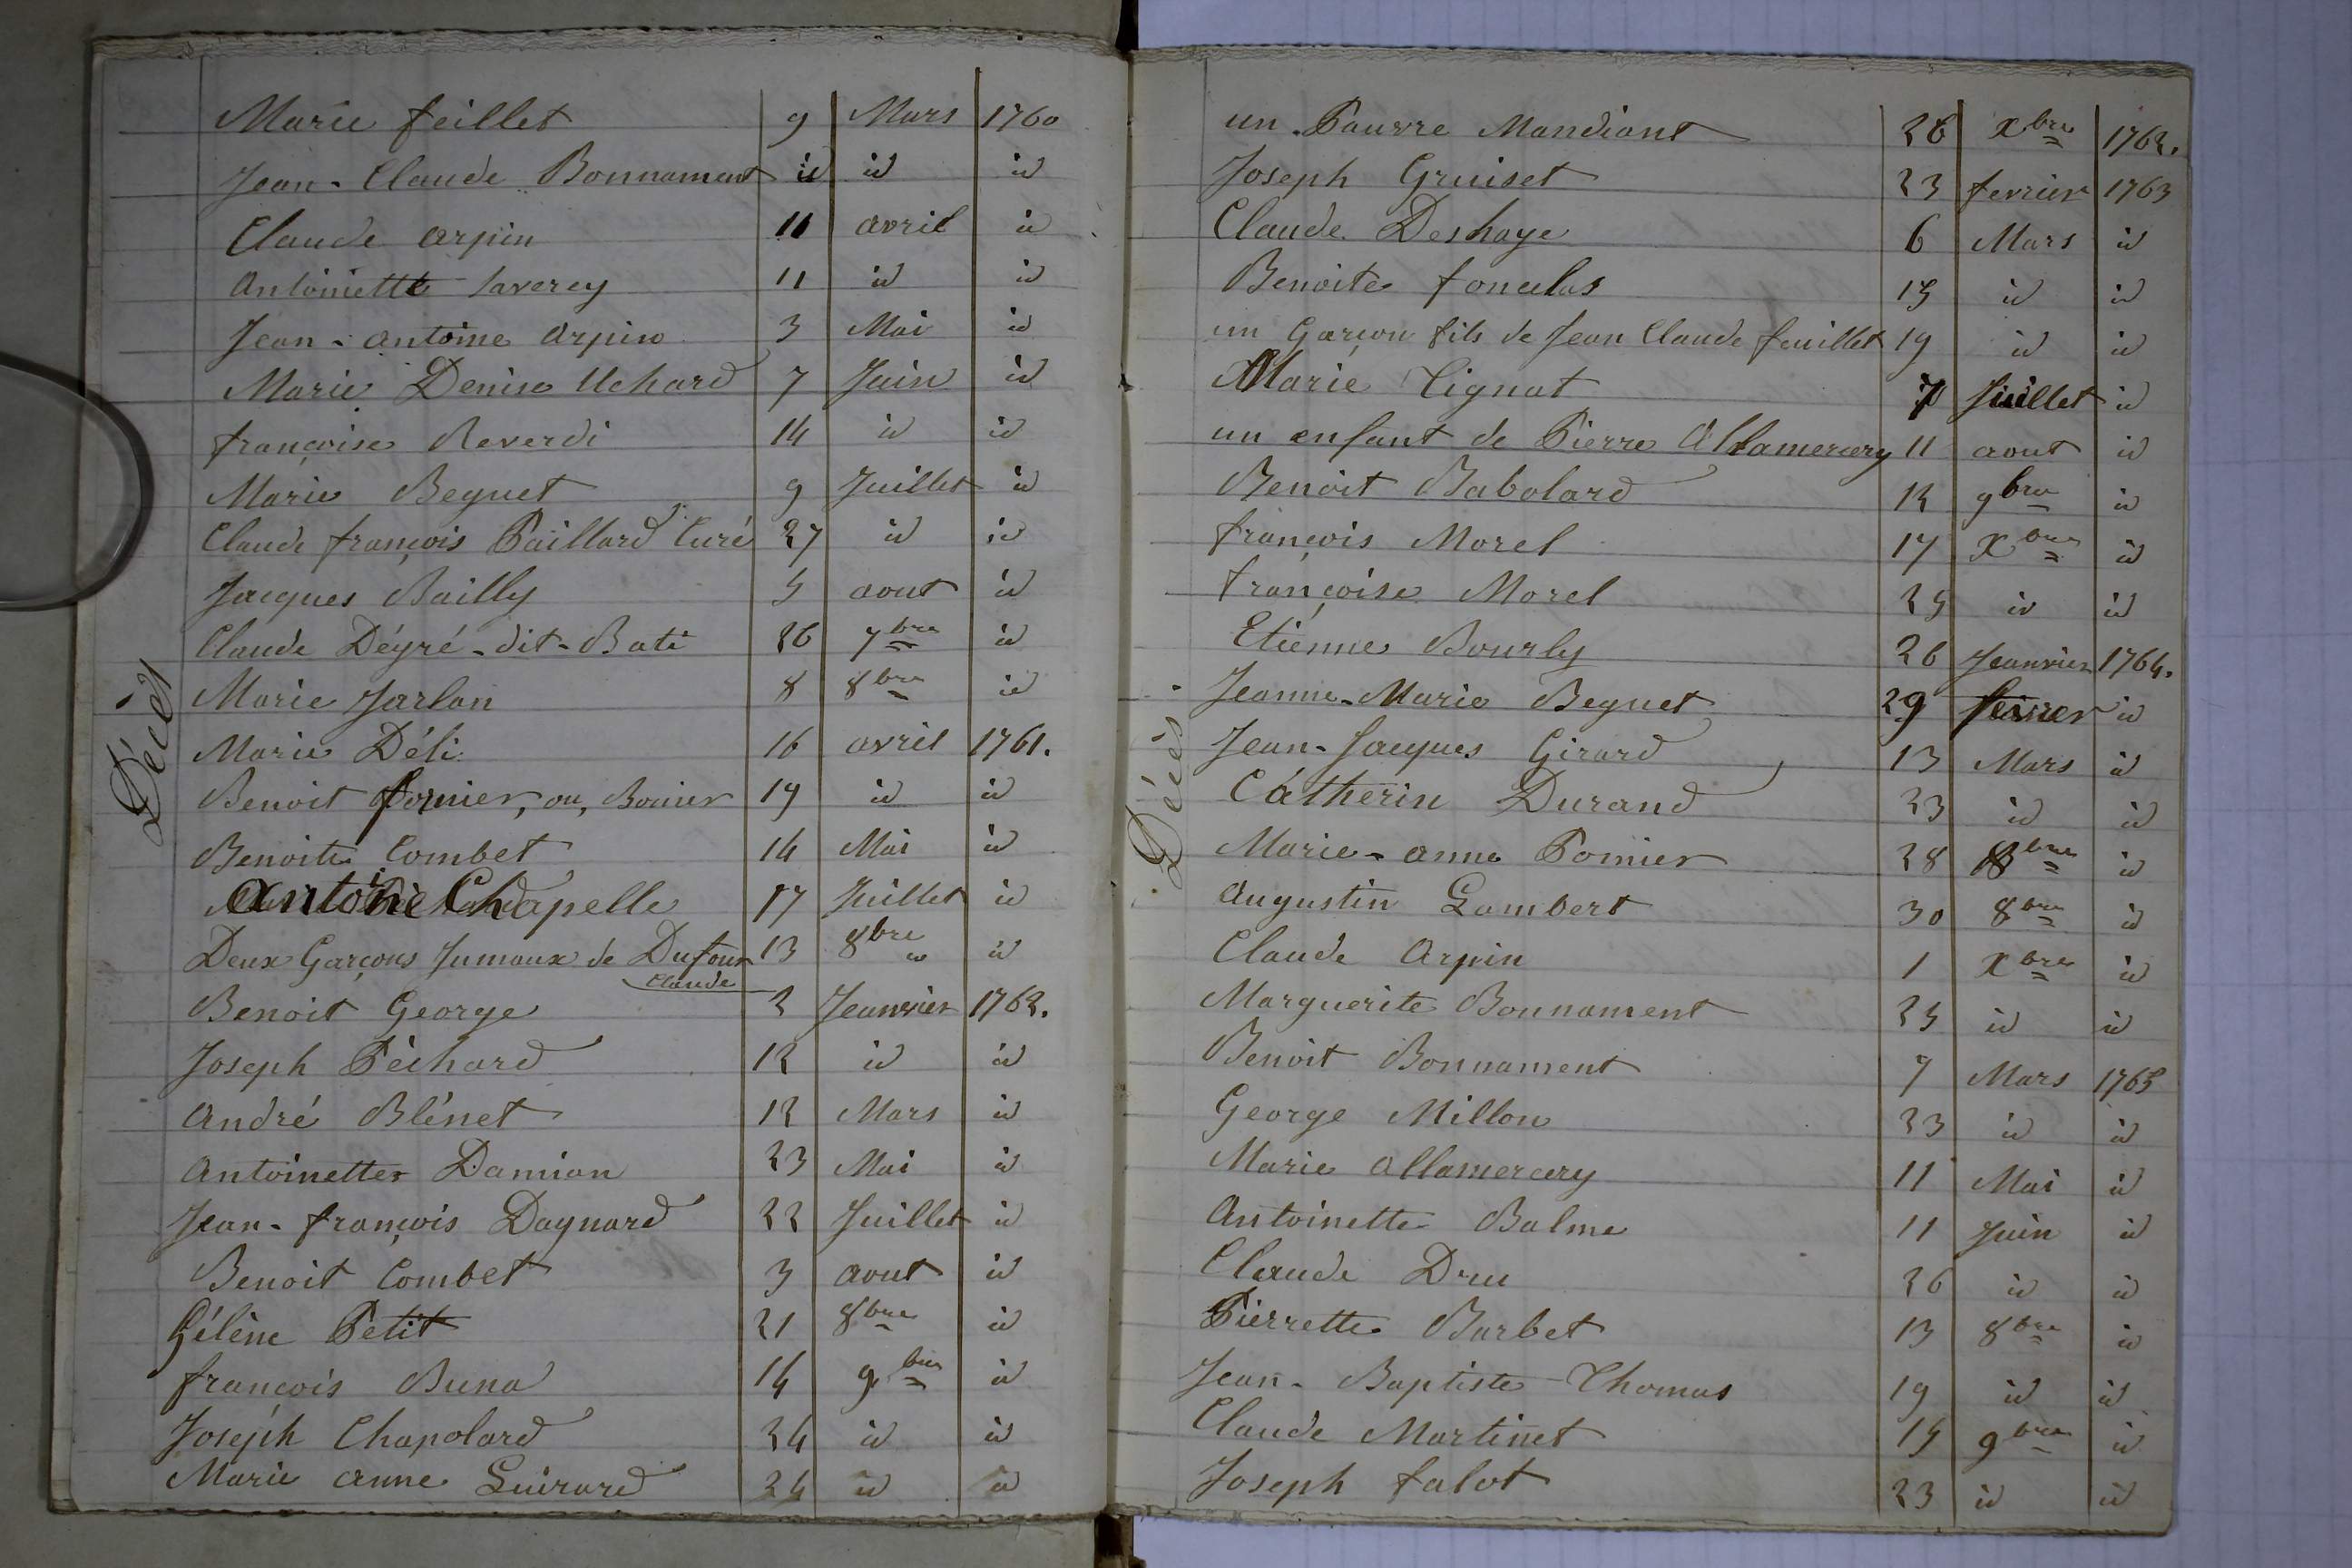 Décès
Marie feillet 9 Mars 1760
Jean-Claude Bonnament id id id
Claude arpin 11 avril id
Antoinette Laverey 11 id id
Jean-antoine arpin 3 Mai id
Marie Denise Uchard 7 Juin id
françoise Reverdi 14 id id
Marie Beguet 9 Juillet id
Claude françois Paillard Curé 27 id id
Jacques Bailly 5 aout id
Claude Dégré-dit-Bati 26 7bre id
Marie Jarlan 8 8bre id
Marie Déli 16 avril 1761.
Benoit fornier, ou, Bonier 19 id id
Benoite Combet 14 Mai id
Antoine Chapelle 17 Juillet id
Deux Garçons Jumaux de Dufour 13 8bre id
Claude
Benoit George 2 Jeanvier 1762.
Joseph Péchard 12 id id
André Blénet 12 Mars id
Antoinette Damian 23 Mai id
Jean-françois Dagnard 22 Juillet id
Benoit Combet 3 aout id
Hélène Petit 21 8bre id
françois Buna 14 9bre id
Joseph Chapolard 24 id id
Marie anne Guirard 24 id id
Décès
un Pauvre Mandiant 26 Xbre 1762.
Joseph Gruiset 23 fevrier 1763
Claude Deshaye 6 Mars id
Benoite 15 id id
un Garçon fils de Jean Claude feuillet 19 id id
Marie Tignat 7 Juillet id
un enfant de Pierre Allamercery 11 aout id
Benoit Babolard 12 9bre id
françois Morel 17 Xbre id
françoise Morel 25 id id
Etienne Bourly 26 Jeanvier 1764.
Jeanne-Marie Beguet 29 fevrier id
Jean-Jacques Girard 13 Mars id
Catherin Durand 23 id id
Marie-anne Pomier 28 8bre id
Augustin Gambert 30 8bre id
Claude Arpin 1 Xbre id
Marguerite Bonnament 25 id id
Benoit Bonnament 7 Mars 1765
George Millon 23 id id
Marie allamercery 11 Mai id
Antoinette Balme 11 Juin id
Claude Dru 26 id id
Pierrette Barbet 13 8bre id
Jean-Baptiste Thomas 19 id id
Claude Martinet 15 9bre id
Joseph falot 23 id id